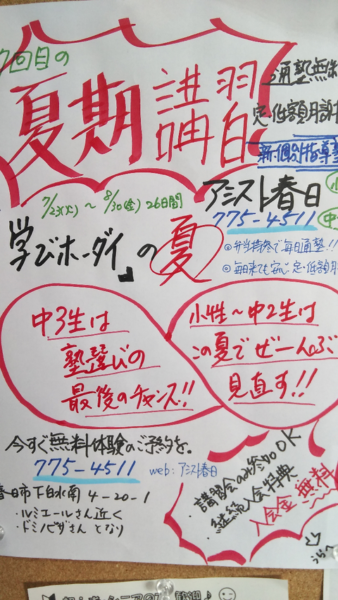 7回目の
夏期講習
通塾無制
定低額月謝
新・個分指導塾
7/23(火)～8/30(金) 26日間
アシスト春日
775-4511
学びホーダイ」の夏
中3生は
塾選びの
最後のチャンス!!
小4生～中2生は
この夏でぜーんぶ
見直す!!
今すぐ無料体験のご予約を。
775-4511
web:アシスト春日
春日市下白水南4-20-1
・ルミエールさん近く
・ドミノピザさんとなり
講習会のみ参加OK
継続入会特典
入会金無料